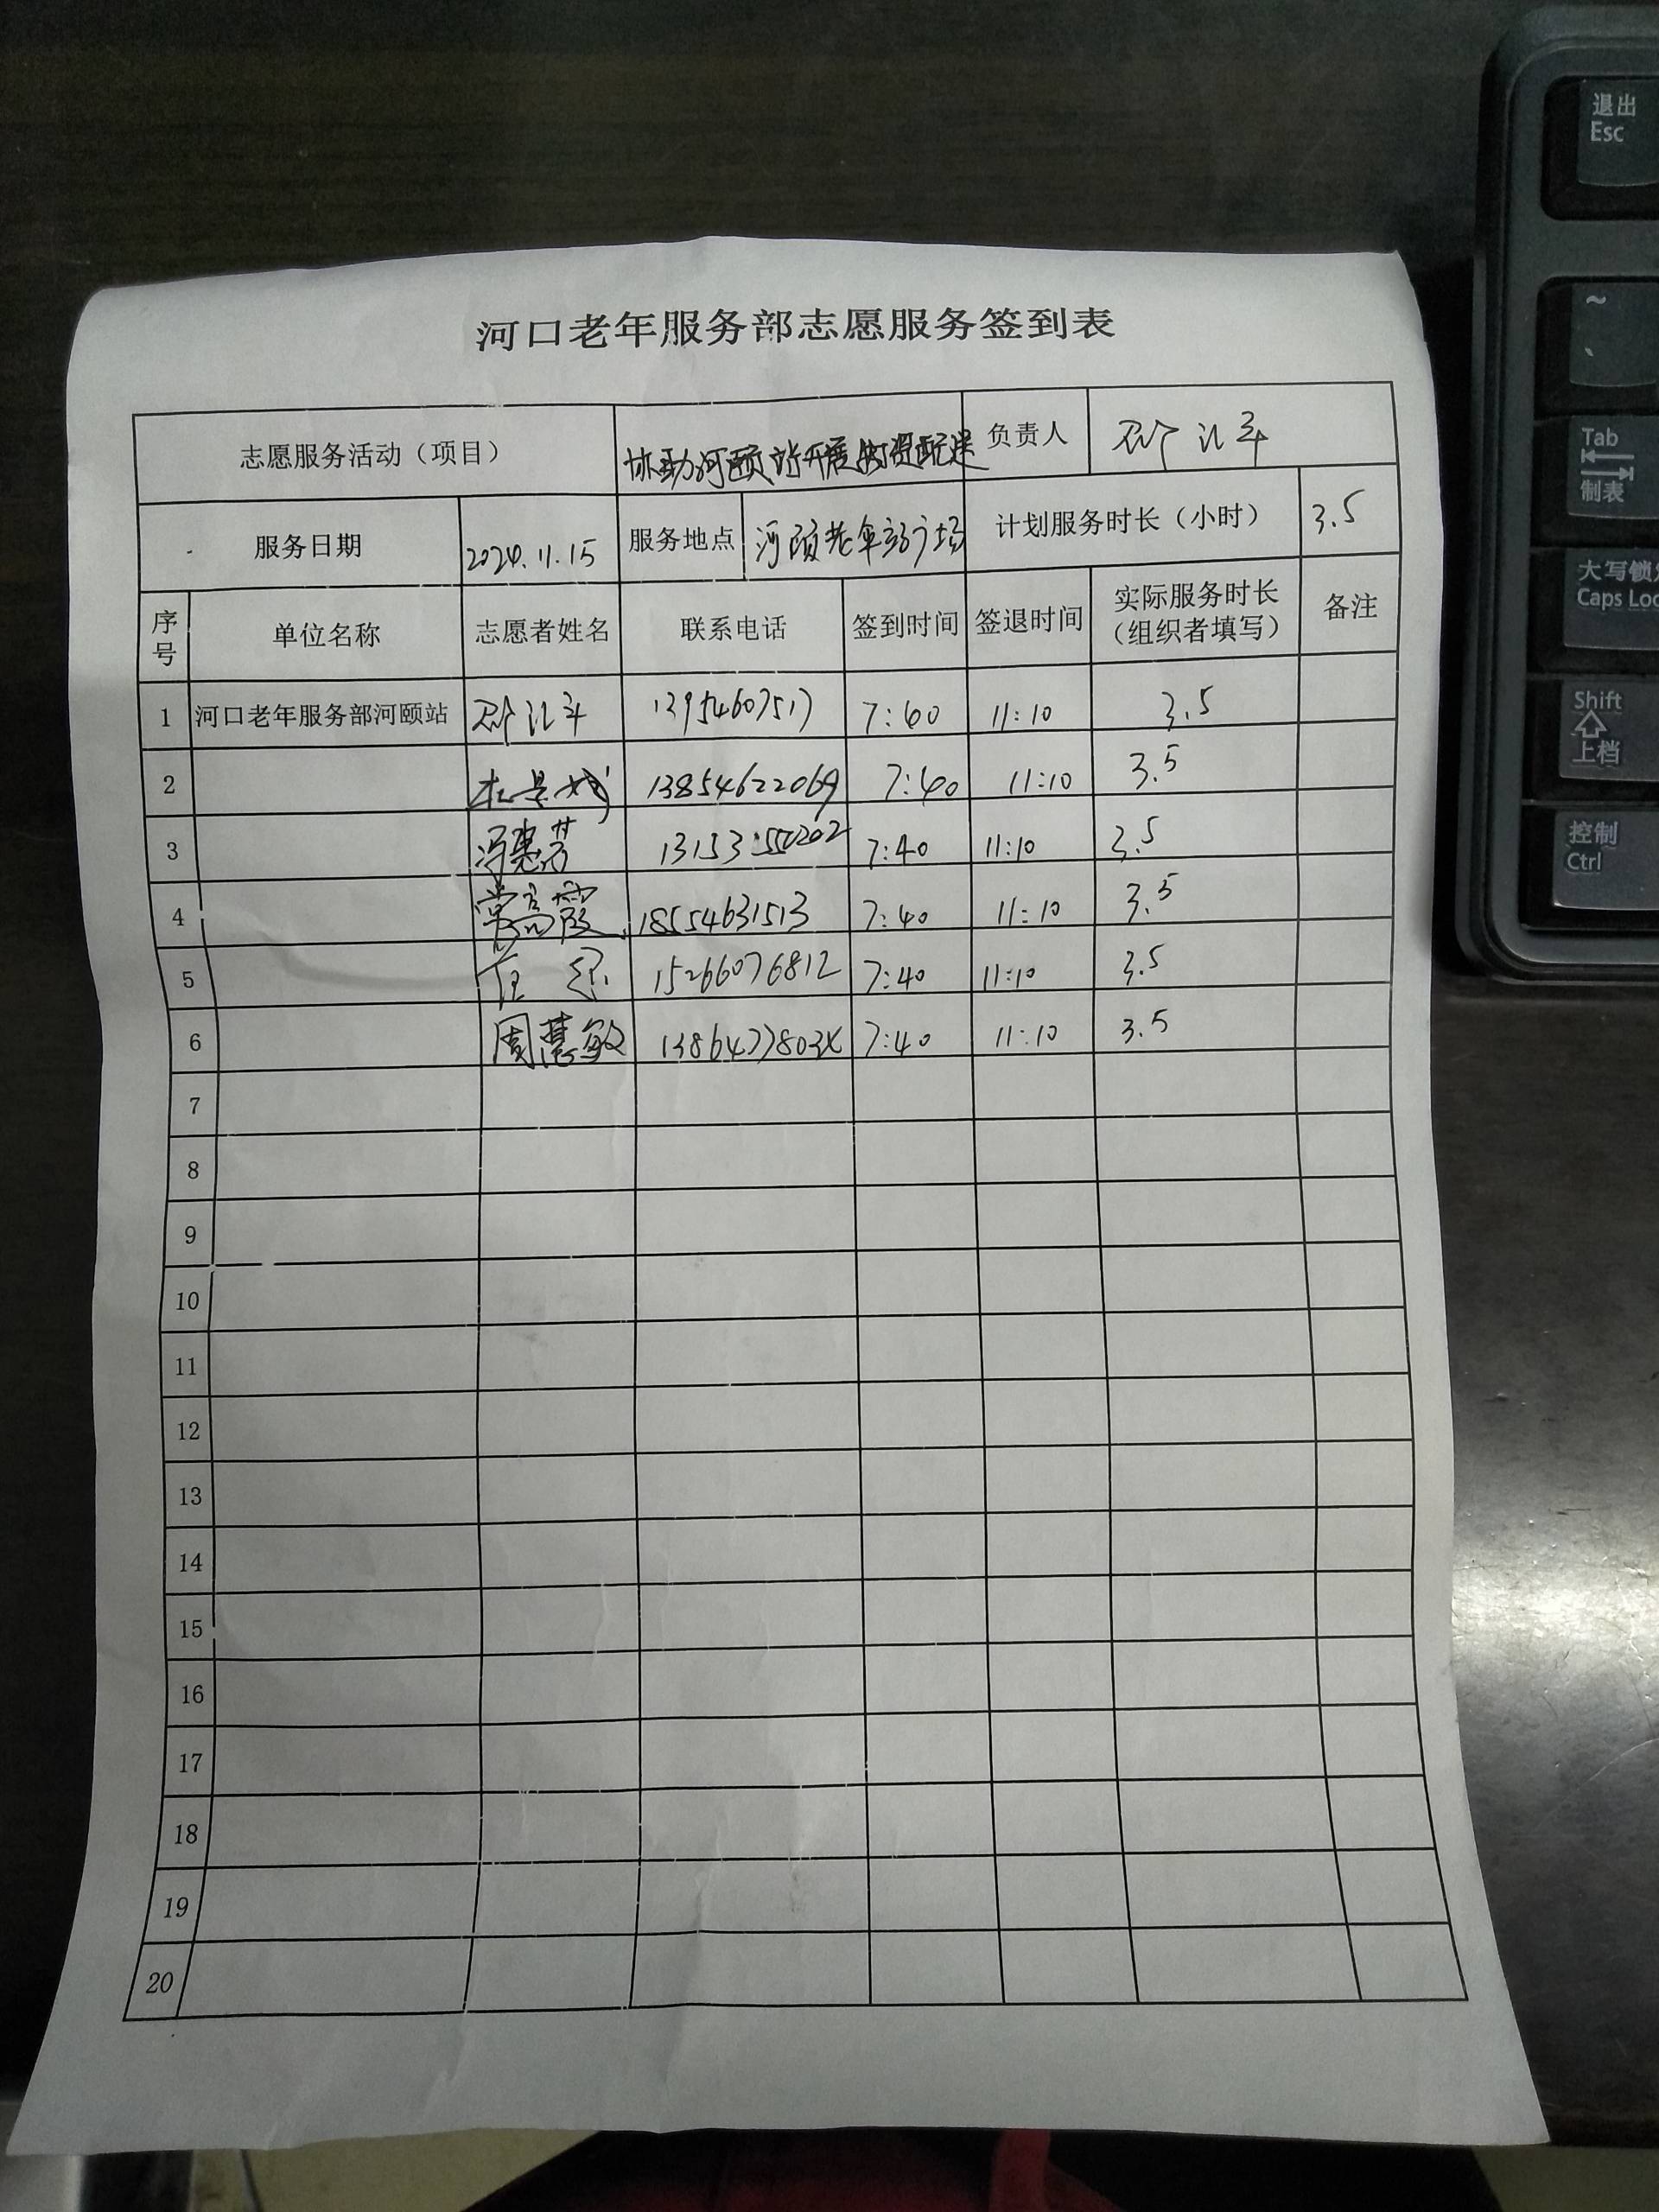 河口老年服务部志愿服务签到表
志愿服务活动（项目） 协助河颐站开展物资配送 负责人
服务日期 2024.11.15 服务地点 河颐老年站广场 计划服务时长（小时） 3.5
序号 单位名称 志愿者姓名 联系电话 签到时间 签退时间 实际服务时长（组织者填写） 备注
1 河口老年服务部河颐站 13954607517 7:40 11:10 3.5
2 13854622069 7:40 11:10 3.5
3 冯惠芳 13153 7:40 11:10 3.5
4 常高霞 18554631513 7:40 11:10 3.5
5 15266076812 7:40 11:10 3.5
6 周慧敏 7:40 11:10 3.5
7
8
9
10
11
12
13
14
15
16
17
18
19
20
退出
Esc
~
、
Tab
制表
大写锁
Caps Loc
Shift
上档
控制
Ctrl